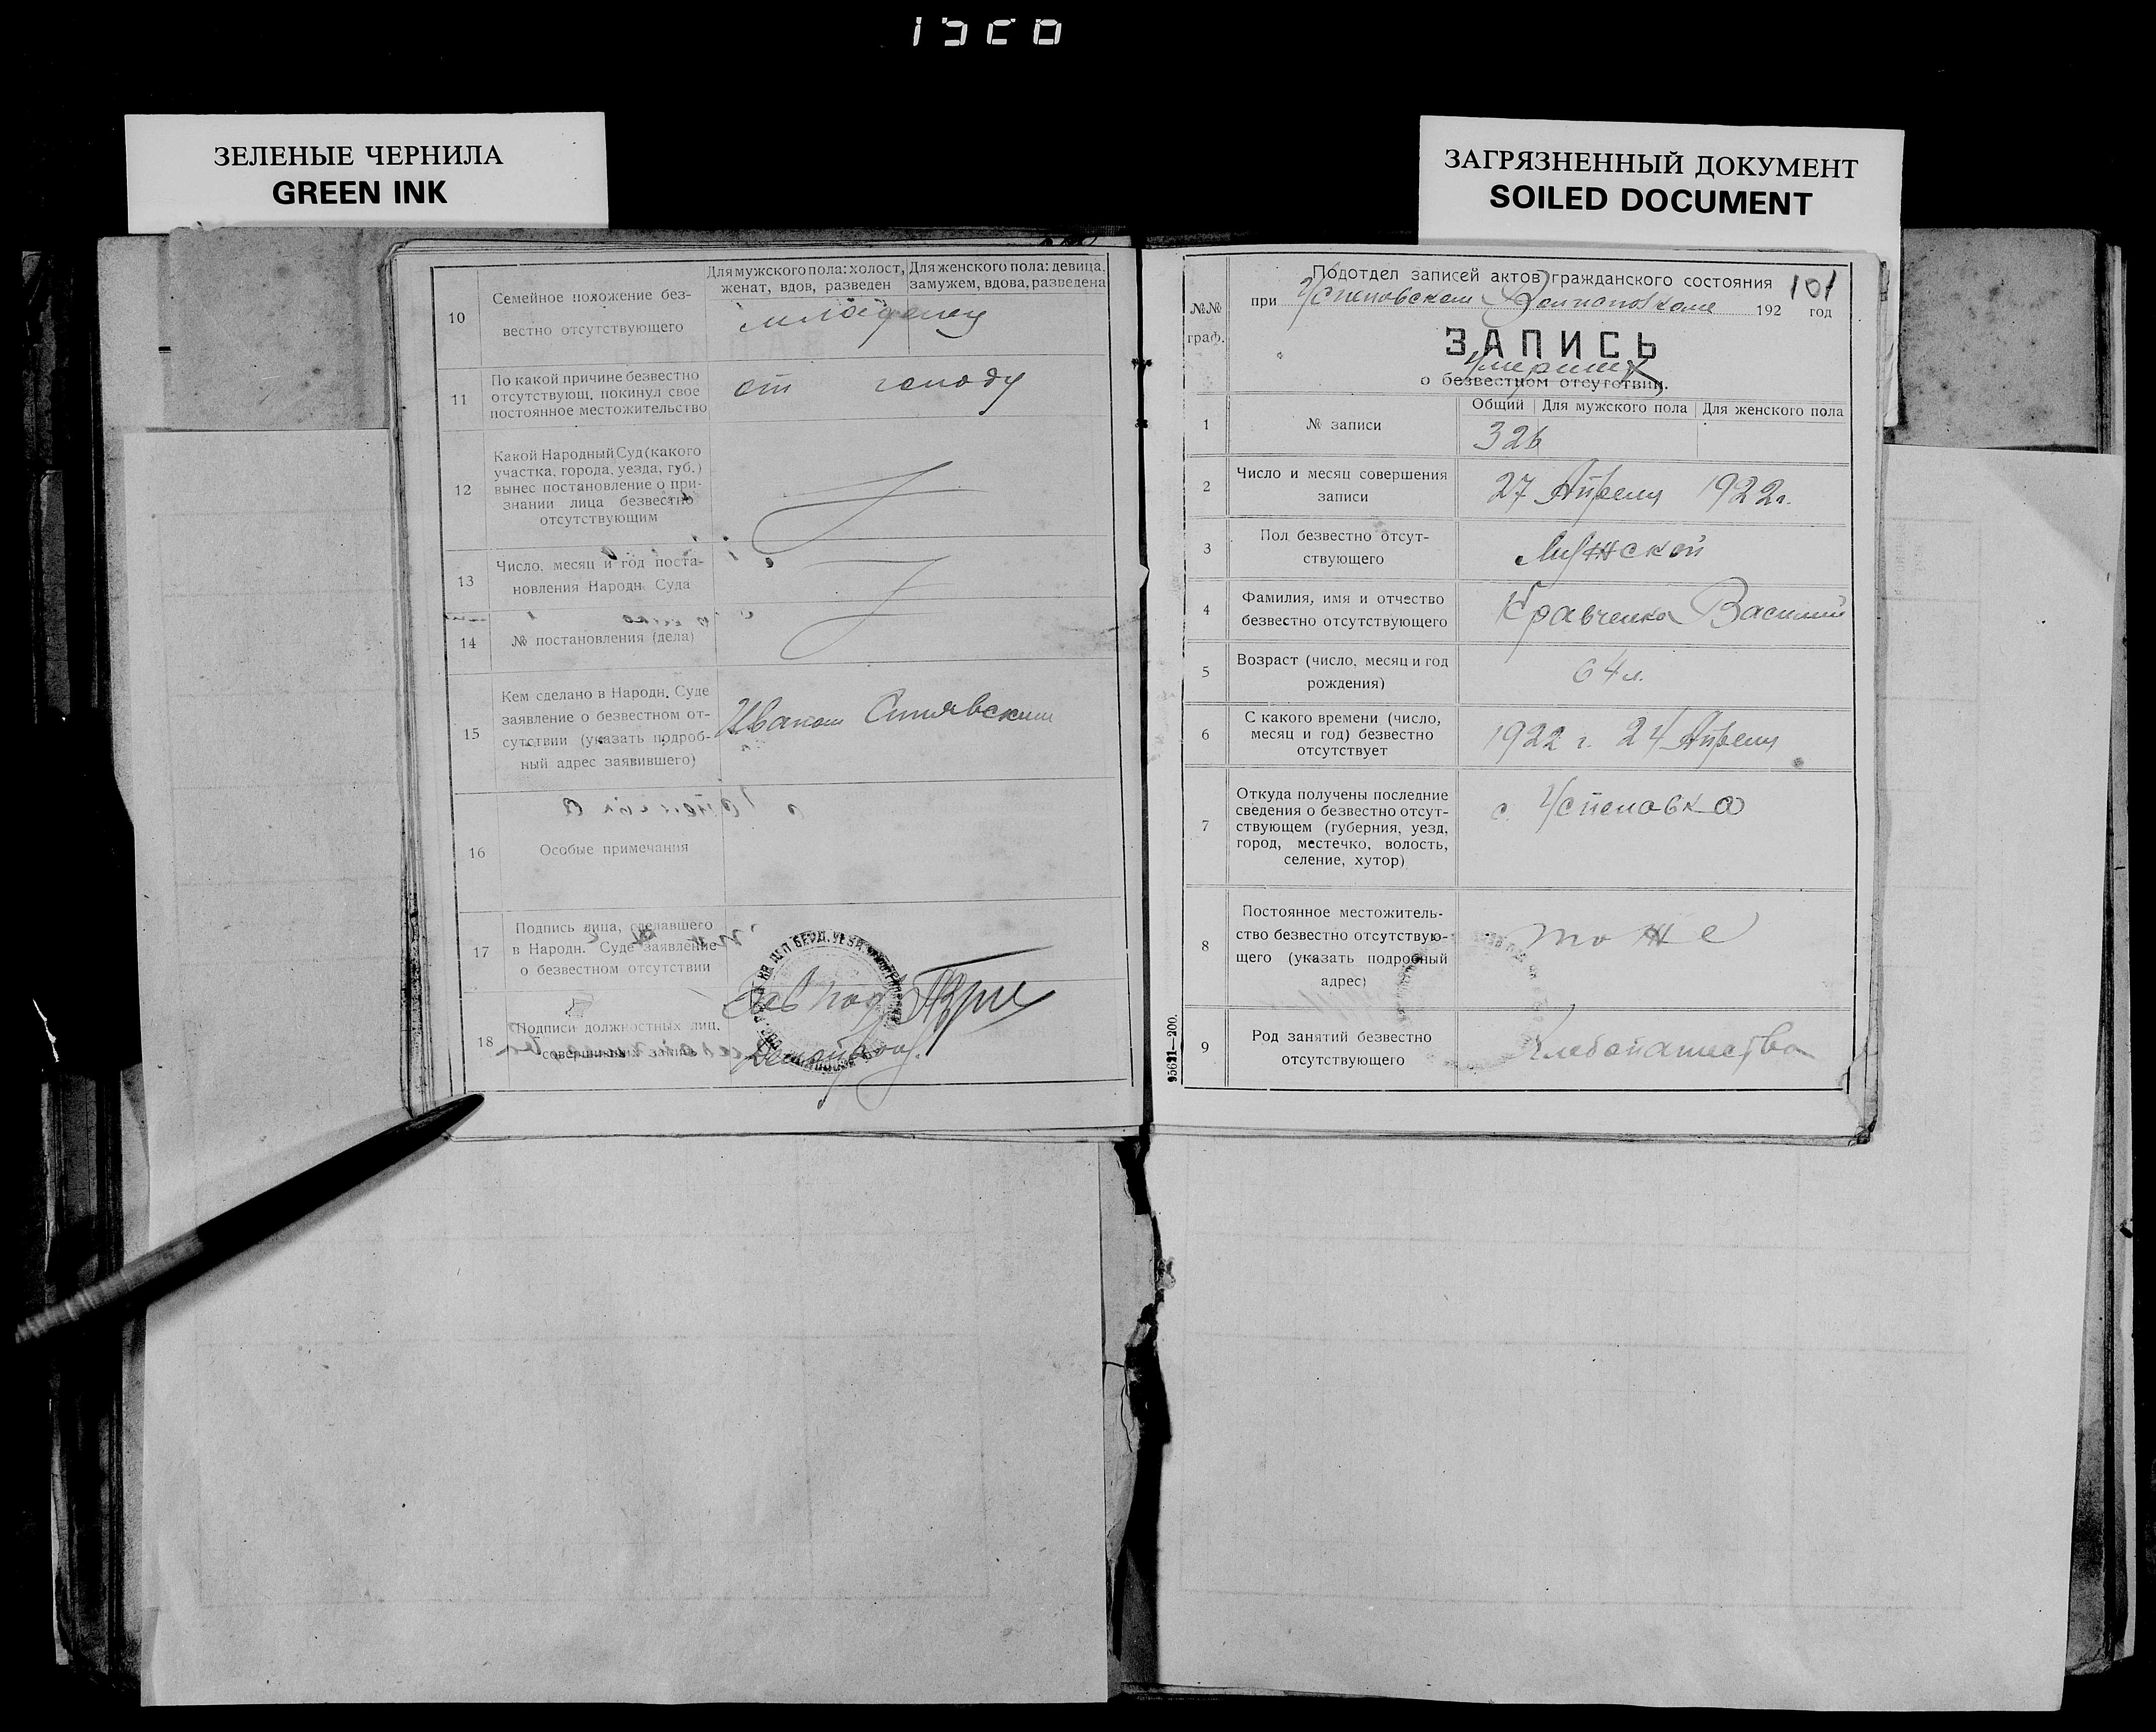 ЗЕЛЕНЫЕ ЧЕРНИЛА
GREEN INK
ЗАГРЯЗНЕННЫЙ ДОКУМЕНТ
SOILED DOCUMENT
Для мужского пола: холост, женат, вдов, разведен
Для женского пола: девица, замужем, вдова, разведена
10
Семейное положение без-
вестно отсутствующего
младенец
11
По какой причине безвестно
отсутствующ. покинул свое
постоянное местожительство
от голоду
12
Какой Народный Суд (какого
участка, города, уезда, губ.)
вынес постановление о при-
знании лица безвестно
отсутствующим
13
Число, месяц и год поста-
новления Народн. Суда
14
№ постановления (дела)
15
Кем сделано в Народн. Суде
заявление о безвестном от-
сутствии (указать подроб-
ный адрес заявившего)
Иваном Синявским
16
Особые примечания
17
Подпись лица, сделавшего
в Народн. Суде заявление
о безвестном отсутствии
18
Подписи должностных лиц,
совершивших запись
Зав под
101
Подотдел записей актов гражданского состояния
№№
граф.
при Успеновском 192 год
ЗАПИСЬ
Умерших
о безвестном отсутствии.
Общий Для мужского пола Для женского пола
1
№ записи
326
2
Число и месяц совершения
записи
27 Апреля 1922г.
3
Пол безвестно отсут-
ствующего
Мужской
4
Фамилия, имя и отчество
безвестно отсутствующего
Кравченко Василий
5
Возраст (число, месяц и год
рождения)
64 л.
6
С какого времени (число,
месяц и год) безвестно
отсутствует
1922 г. 24 Апреля
7
Откуда получены последние
сведения о безвестно отсут-
ствующем (губерния, уезд,
город, местечко, волость,
селение, хутор)
с. Успеновка
8
Постоянное местожитель-
ство безвестно отсутствую-
щего (указать подробный
адрес)
тоже
9
Род занятий безвестно
отсутствующего
Хлебопашества
95621—200.